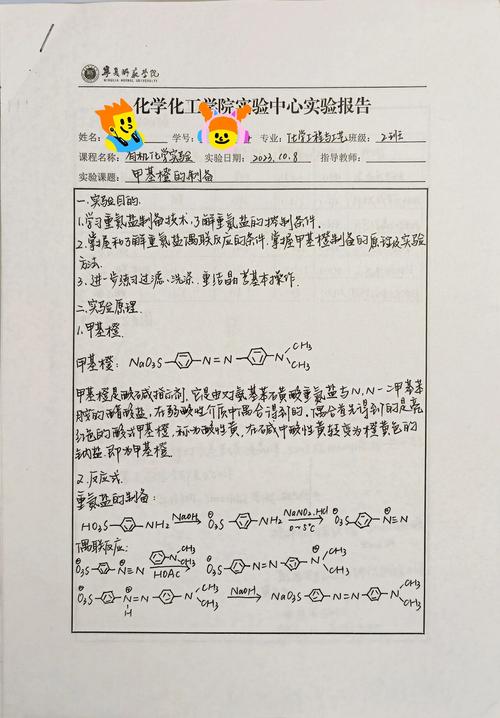 宁夏师范学院
NINGXIA NORMAL UNIVERSITY
化学化工学院实验中心实验报告
姓名: 学号: 专业: 化学工程与工艺 班级: 2班
课程名称: 有机化学实验 实验日期: 2023.10.8 指导教师:
实验课题: 甲基橙的制备
一.实验目的.
1.学习重氮盐制备技术,了解重氮盐的控制条件.
2.掌握和了解重氮盐偶联反应的条件.掌握甲基橙制备的原理及实验
方法.
3.进一步练习过滤、洗涤、重结晶等基本操作.
二.实验原理.
1.甲基橙.
甲基橙: NaO₃S N=N N CH₃ CH₃
甲基橙是酸碱指示剂,它是由对氨基苯磺酸重氮盐与N,N-二甲基苯
胺的醋酸盐,在弱酸性介质中偶合得到的,偶合首先得到的是亮
红色的酸式甲基橙,称为酸性黄,在碱中酸性黄转变为橙黄色的
钠盐,即为甲基橙.
2.反应式.
重氮盐的制备:
HO₃S NH₂ NaOH ⊖O₃S NH₂ NaNO₂,HCl 0~5℃ ⊖O₃S ⊕N≡N
偶联反应:
⊖O₃S ⊕N≡N N CH₃ CH₃ HOAc ⊖O₃S N=N ⊕N CH₃ CH₃
⊖O₃S ⊕N=N H N CH₃ CH₃ NaOH NaO₃S N=N N CH₃ CH₃